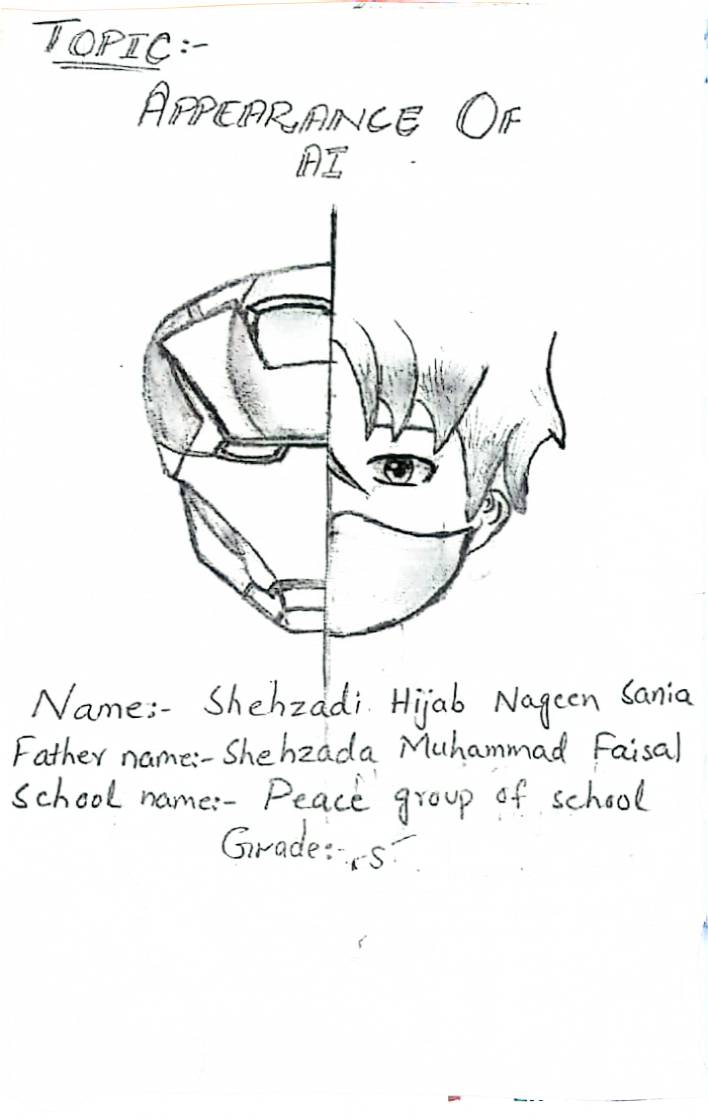 TOPIC:-
APPEARANCE OF
AI
Name:- Shehzadi Hijab Nageen Sania
Father name:- Shehzada Muhammad Faisal
School name:- Peace group of school
Grade:- 5